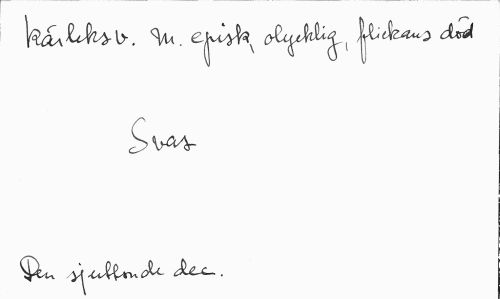 Kärleksv. m. episk, olycklig, flickans död
Svas
Den sjuttonde dec.